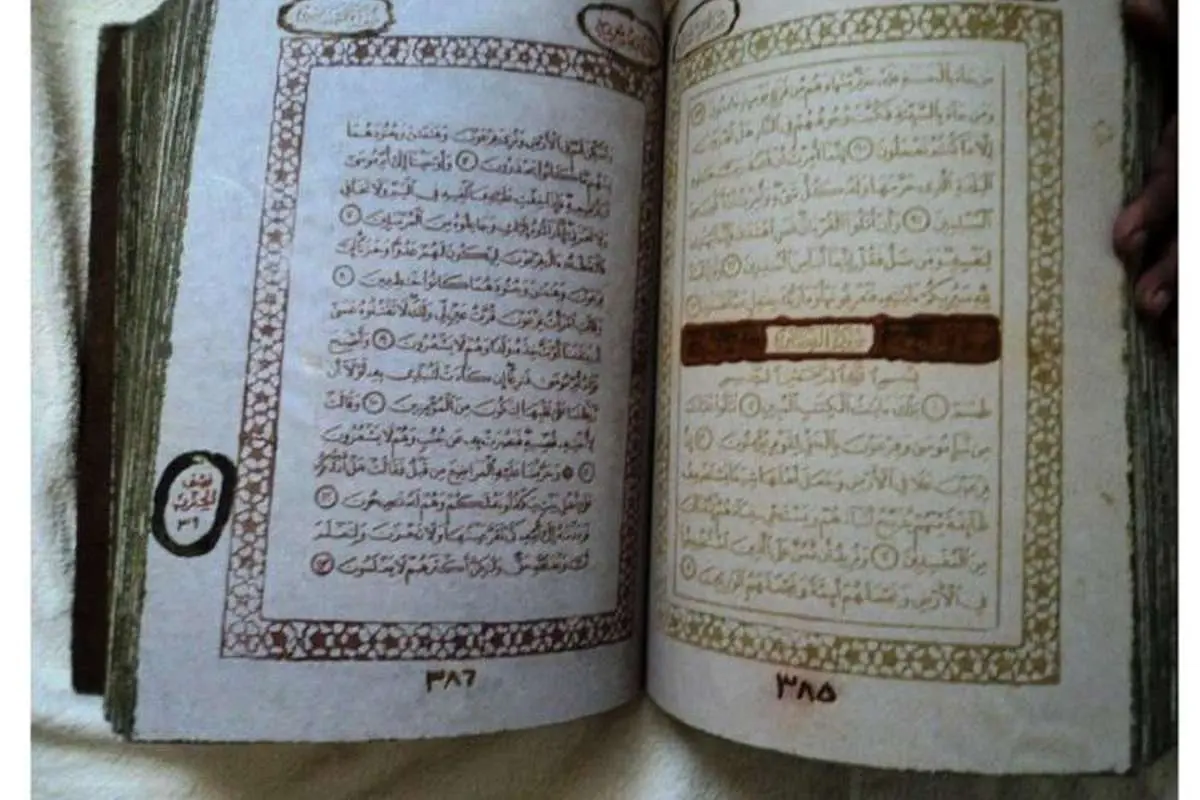 من جاء بالحسنة فله خير منها وهم من فزع يومئذ ءامنون ٨٩
ومن جاء بالسيئة فكبت وجوههم في النار هل تجزون
إلا ما كنتم تعملون ٩٠ إنما أمرت أن أعبد رب هذه
البلدة الذي حرمها وله كل شيء وأمرت أن أكون من
المسلمين ٩١ وأن أتلوا القرءان فمن اهتدى فإنما يهتدي
لنفسه ومن ضل فقل إنما أنا من المنذرين ٩٢ وقل الحمد
لله سيريكم ءايته فتعرفونها وما ربك بغفل عما تعملون ٩٣
سورة القصص
بسم الله الرحمن الرحيم
طسم ١ تلك ءايت الكتب المبين ٢ نتلوا عليك
من نبإ موسى وفرعون بالحق لقوم يؤمنون ٣ إن
فرعون علا في الأرض وجعل أهلها شيعا يستضعف
طائفة منهم يذبح أبناءهم ويستحيۦ نساءهم إنه كان
من المفسدين ٤ ونريد أن نمن على الذين استضعفوا
في الأرض ونجعلهم أئمة ونجعلهم الورثين ٥
٣٨٥
ونمكن لهم في الأرض ونري فرعون وهمن وجنودهما
منهم ما كانوا يحذرون ٦ وأوحينا إلى أم موسى
أن أرضعيه فإذا خفت عليه فألقيه في اليم ولا تخافي
ولا تحزني إنا رادوه إليك وجاعلوه من المرسلين ٧
فالتقطه ءال فرعون ليكون لهم عدوا وحزنا إن
فرعون وهمن وجنودهما كانوا خطين ٨
وقالت امرأت فرعون قرت عين لي ولك لا تقتلوه عسى
أن ينفعنا أو نتخذه ولدا وهم لا يشعرون ٩ وأصبح
فؤاد أم موسى فرغا إن كادت لتبدي به لولا أن
ربطنا على قلبها لتكون من المؤمنين ١٠ وقالت
لأخته قصيه فبصرت به عن جنب وهم لا يشعرون
١١ ۞ وحرمنا عليه المراضع من قبل فقالت هل أدلكم
على أهل بيت يكفلونه لكم وهم له نصحون ١٢
فرددنه إلى أمه كي تقر عينها ولا تحزن ولتعلم
أن وعد الله حق ولكن أكثرهم لا يعلمون ١٣
نصف
الحزب
٣٩
٣٨٦